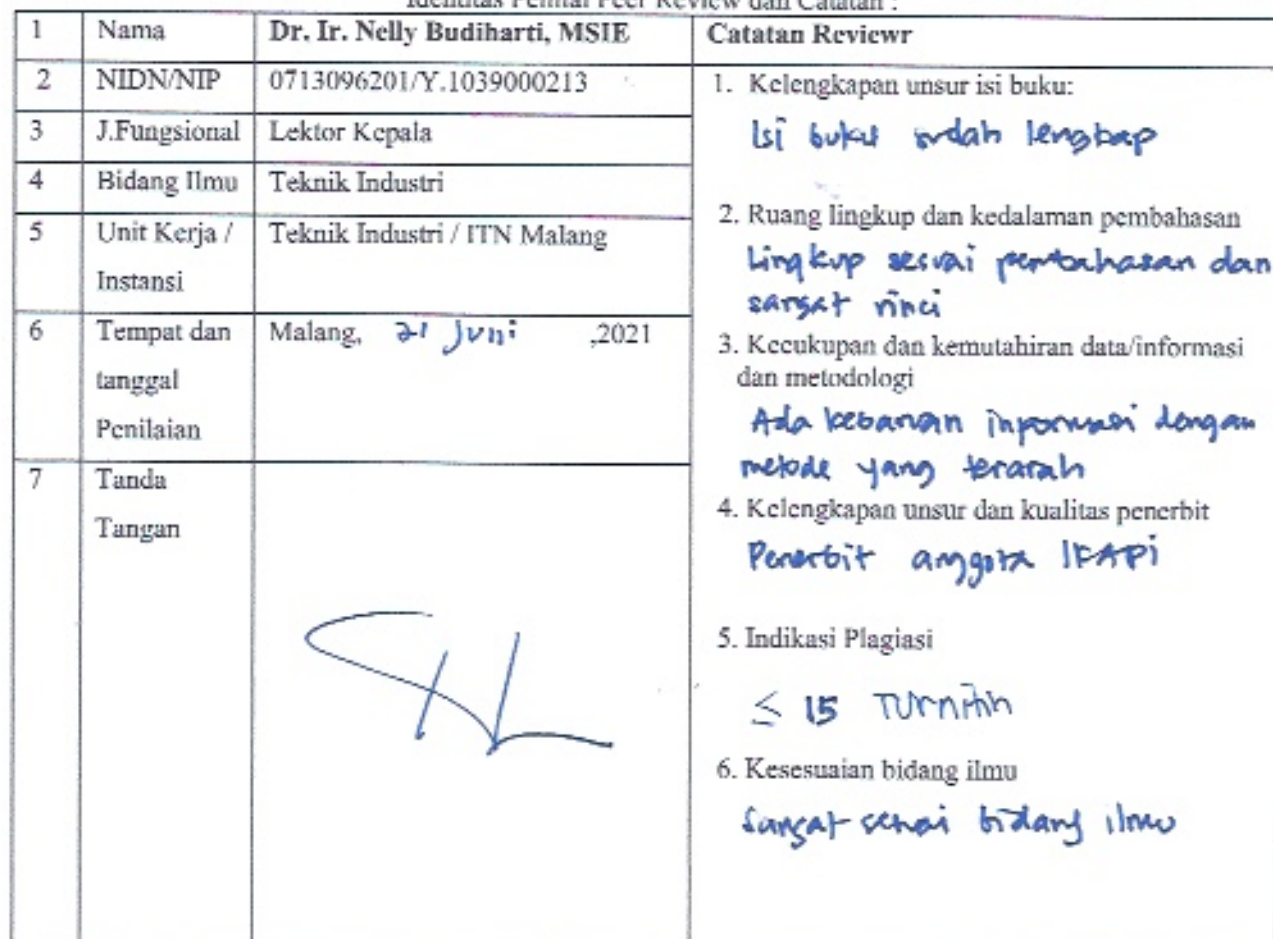 Identitas Penilai Peer Review dan Catatan :
1 Nama Dr. Ir. Nelly Budiharti, MSIE
2 NIDN/NIP 0713096201/Y.1039000213
3 J.Fungsional Lektor Kepala
4 Bidang Ilmu Teknik Industri
5 Unit Kerja / Teknik Industri / ITN Malang
Instansi
6 Tempat dan Malang, 21 Juni ,2021
tanggal
Penilaian
7 Tanda
Tangan
Catatan Reviewr
1. Kelengkapan unsur isi buku:
Isi buku sudah lengkap
2. Ruang lingkup dan kedalaman pembahasan
Lingkup sesuai pembahasan dan
sangat rinci
3. Kecukupan dan kemutahiran data/informasi
dan metodologi
Ada informasi dengan
metode yang terarah
4. Kelengkapan unsur dan kualitas penerbit
Penerbit anggota IKAPI
5. Indikasi Plagiasi
≤ 15 Turnitin
6. Kesesuaian bidang ilmu
Sangat sesuai bidang ilmu